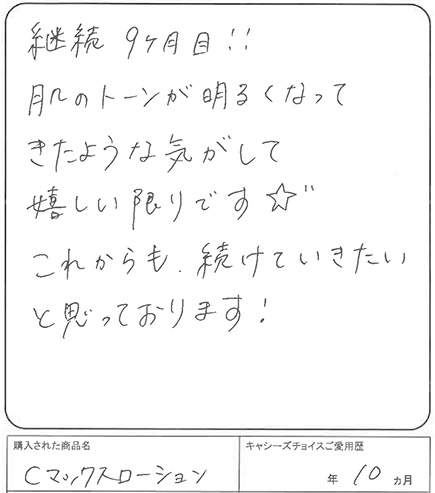 継続 9ヶ月目!!
肌のトーンが明るくなって
きたような気がして
嬉しい限りです☆"
これからも、続けていきたい
と思っております!
購入された商品名
Cマックスローション
キャシーズチョイスご愛用歴
年 10 カ月